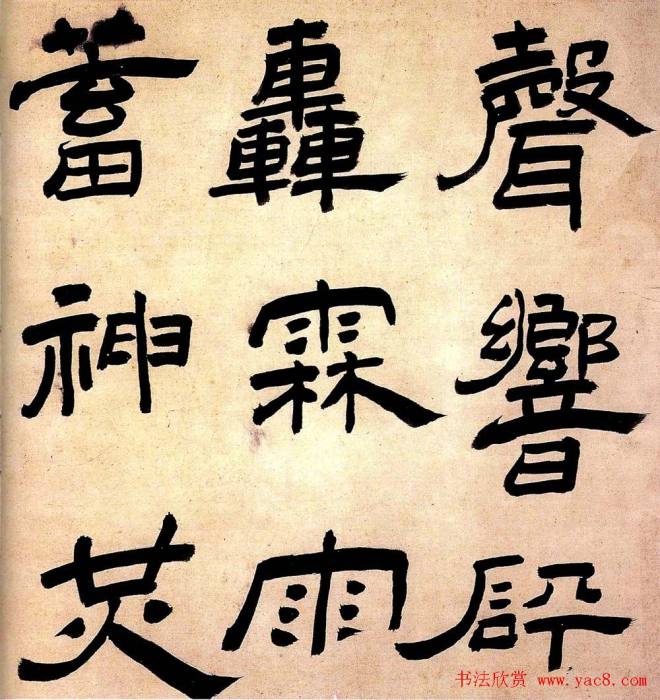 聲響砰
轟霖雨
蓄神炗
书法欣赏 www.yac8.com